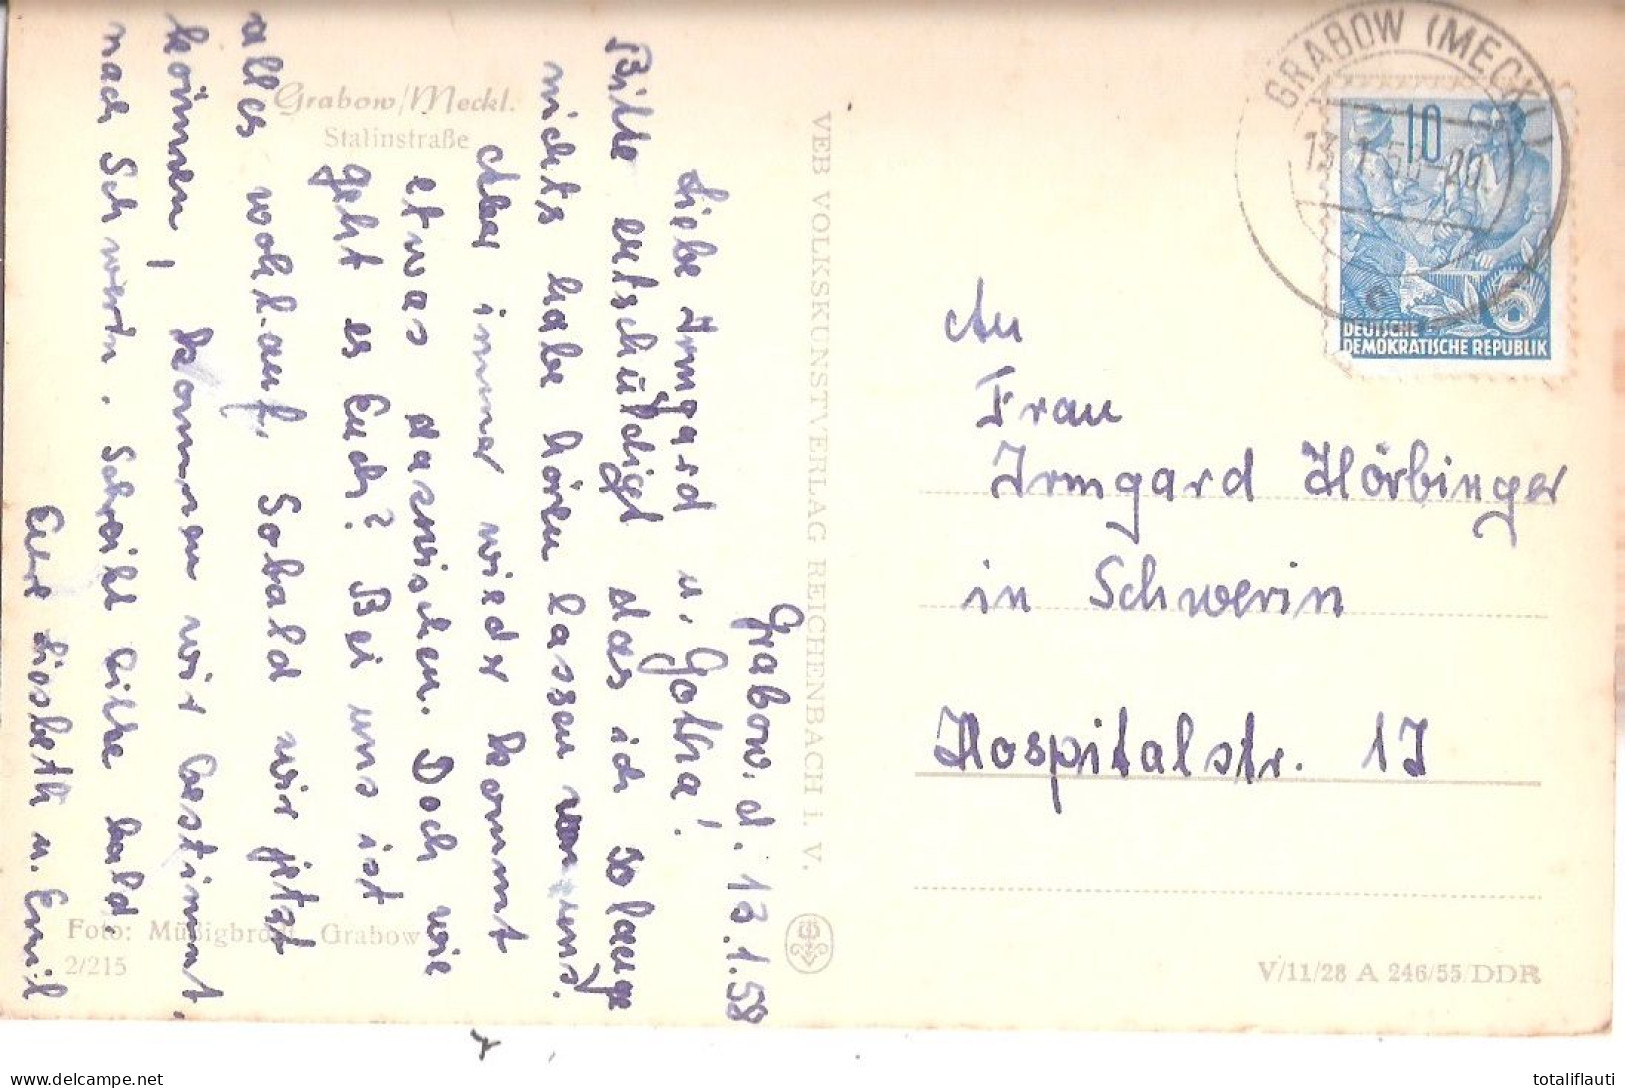 Grabow/Meckl.
Stalinstraße
Grabow. d. 13.1.58
Liebe Irmgard u. Gotha!
Bitte entschüldigt das ich so lange
nichts habe hören lassen von uns.
Aber immer wieder kommt
etwas dazwischen. Doch wie
geht es Euch? Bei uns ist
alles wohl-auf. Sobald wir jetzt
können, kommen wir bestimmt
nach Schwerin. Schreibt bitte bald.
Eure Liesbeth u. Emil
Foto: Müßigbrodt, Grabow
2/215
VEB VOLKSKUNSTVERLAG REICHENBACH I. V.
GRABOW (MECKL)
10
DEUTSCHE
DEMOKRATISCHE REPUBLIK
An
Frau
Irmgard Hörbinger
in Schwerin
Hospitalstr. 17
V/11/28 A 246/55/DDR
totaliflauti